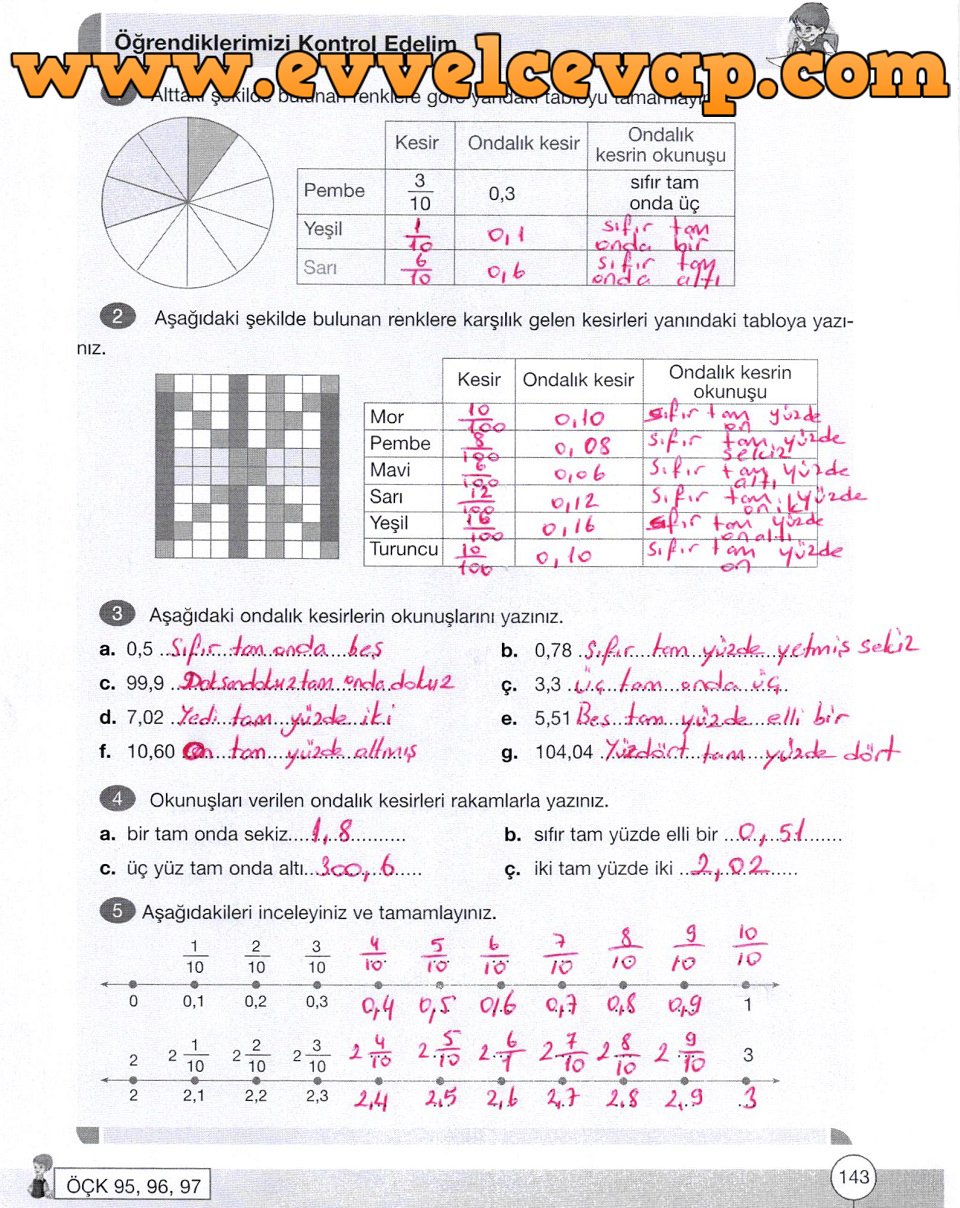 Öğrendiklerimizi Kontrol Edelim
www.evvelcevap.com
Alttaki şekilde bulunan renklere göre yandaki tabloyu tamamlayın
Kesir Ondalık kesir Ondalık kesrin okunuşu
Pembe 3/10 0,3 sıfır tam onda üç
Yeşil 1/10 0,1 sıfır tam onda bir
Sarı 6/10 0,6 sıfır tam onda altı
2 Aşağıdaki şekilde bulunan renklere karşılık gelen kesirleri yanındaki tabloya yazı-
nız.
Kesir Ondalık kesir Ondalık kesrin okunuşu
Mor 10/100 0,10 sıfır tam yüzde on
Pembe 8/100 0,08 sıfır tam yüzde sekiz
Mavi 6/100 0,06 sıfır tam yüzde altı
Sarı 12/100 0,12 sıfır tam yüzde on iki
Yeşil 16/100 0,16 sıfır tam yüzde on altı
Turuncu 10/100 0,10 sıfır tam yüzde on
3 Aşağıdaki ondalık kesirlerin okunuşlarını yazınız.
a. 0,5 Sıfır tam onda beş
b. 0,78 Sıfır tam yüzde yetmiş sekiz
c. 99,9 Doksandokuz tam onda dokuz
ç. 3,3 Üç tam onda üç
d. 7,02 Yedi tam yüzde iki
e. 5,51 Beş tam yüzde elli bir
f. 10,60 On tam yüzde altmış
g. 104,04 Yüzdört tam yüzde dört
4 Okunuşları verilen ondalık kesirleri rakamlarla yazınız.
a. bir tam onda sekiz 1,8
b. sıfır tam yüzde elli bir 0,51
c. üç yüz tam onda altı 300,6
ç. iki tam yüzde iki 2,02
5 Aşağıdakileri inceleyiniz ve tamamlayınız.
1/10 2/10 3/10 4/10 5/10 6/10 7/10 8/10 9/10 10/10
0 0,1 0,2 0,3 0,4 0,5 0,6 0,7 0,8 0,9 1
2 2 1/10 2 2/10 2 3/10 2 4/10 2 5/10 2 6/1 2 7/10 2 8/10 2 9/10 3
2 2,1 2,2 2,3 2,4 2,5 2,6 2,7 2,8 2,9 3
ÖÇK 95, 96, 97
143